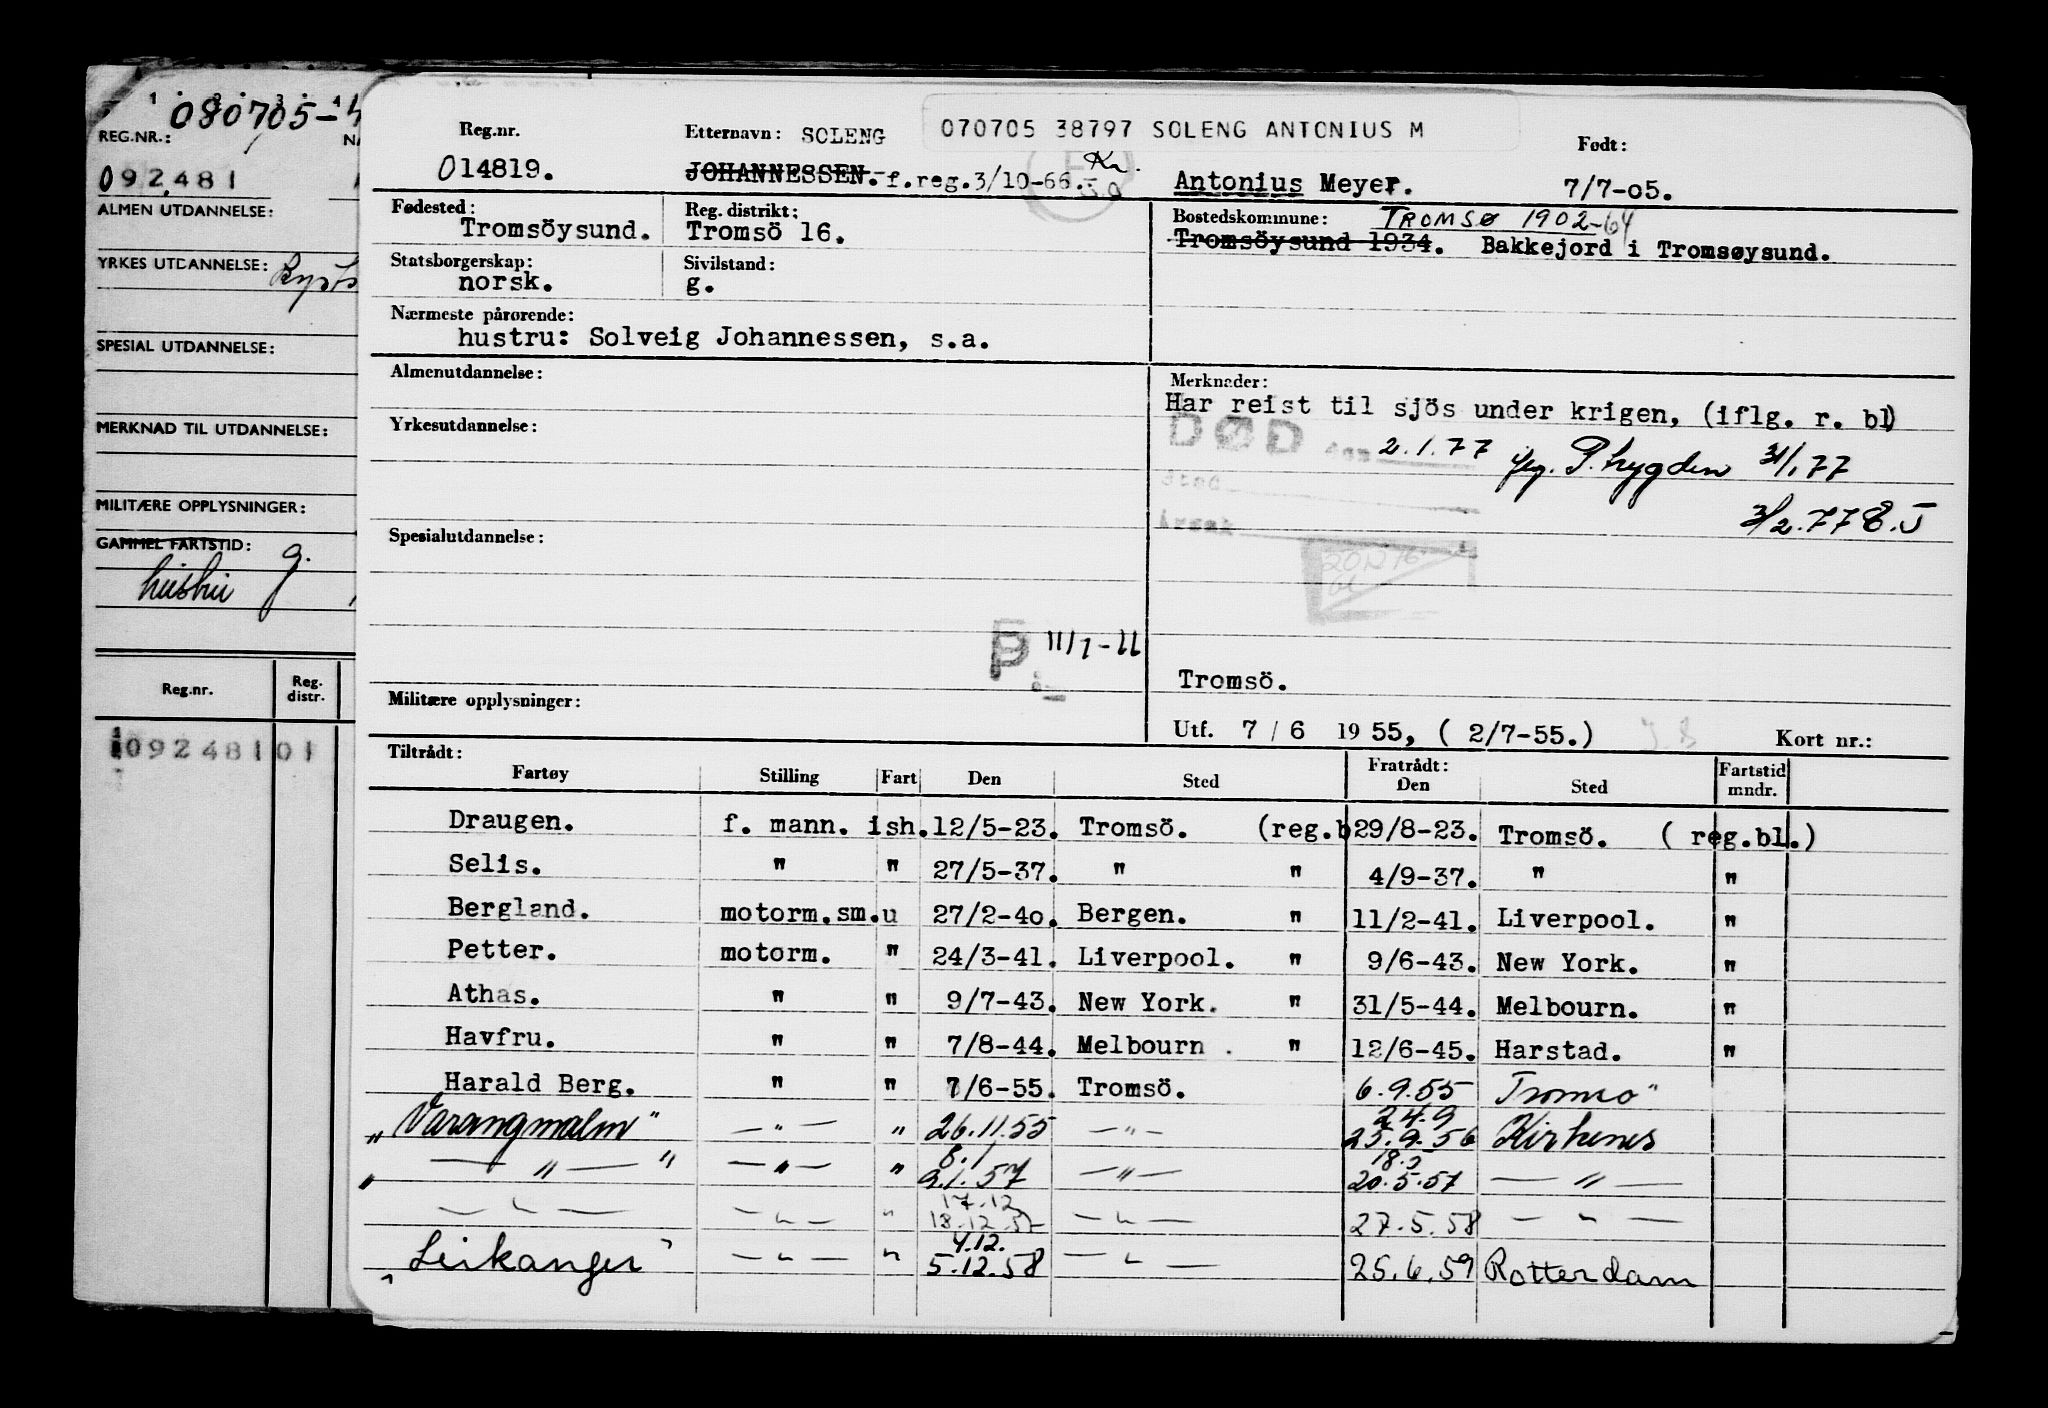 1 2 3 4
080705-4
REG.NR.:
092481
ALMEN UTDANNELSE:
YRKES UTDANNELSE:
SPESIAL UTDANNELSE:
MERKNAD TIL UTDANNELSE:
MILITÆRE OPPLYSNINGER:
GAMMEL FARTSTID: g.
hustru
Reg.nr. Reg. distr.
09248101
Reg.nr. Etternavn: SOLENG 070705 38797 SOLENG ANTONIUS M Født:
014819. JOHANNESSEN. f.reg.3/10-66. Antonius Meyer. 7/7-05.
Fødested: Reg. distrikt: Bostedskommune: TROMSØ 1902-64
Tromsöysund. Tromsö 16. Tromsöysund 1934. Bakkejord i Tromsøysund.
Statsborgerskap: Sivilstand:
norsk. g.
Nærmeste pårørende:
hustru: Solveig Johannessen, s.a.
Almenutdannelse: Merknader:
Har reist til sjös under krigen, (iflg. r. bl)
Yrkesutdannelse: DØD den 2.1.77 31/1 77
Sted
3/2.77
Årsak
Spesialutdannelse:
P 11/7-
Tromsö.
Militære opplysninger:
Utf. 7 / 6 1955, ( 2/7-55.) Kort nr.:
Tiltrådt: Fratrådt: Fartstid
Fartøy Stilling Fart Den Sted Den Sted mndr.
Draugen. f. mann. ish. 12/5-23. Tromsö. (reg.b 29/8-23. Tromsö. ( reg.bl.)
Selis. " " 27/5-37. " " 4/9-37. " "
Bergland. motorm.sm.u 27/2-40. Bergen. " 11/2-41. Liverpool. "
Petter. motorm. " 24/3-41. Liverpool. " 9/6-43. New York. "
Athas. " " 9/7-43. New York. " 31/5-44. Melbourn. "
Havfru. " " 7/8-44. Melbourn. " 12/6-45. Harstad. "
Harald Berg. " " 7/6-55. Tromsö. 6.9.55 Tromsö
24.9
"Varangmalm" — " — " 26.11.55 — " — 25.9.56 Kirkenes
8.1 18.5
" — " — " — " — " 9.1.57 — " — 20.5.57 — " —
17.12
— " — — " — " 18.12.57 — " — 27.5.58 — " —
4.12.
"Leikanger" — " — " 5.12.58 — " — 25.6.59 Rotterdam